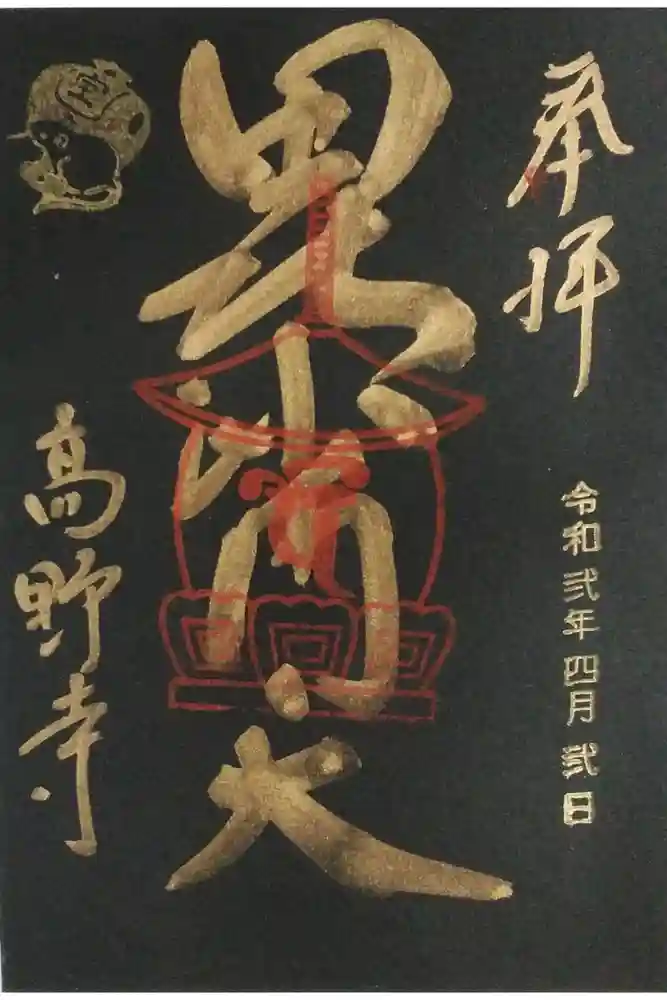 奉拝
令和弐年四月弐日
毘沙門天
高野寺
宝